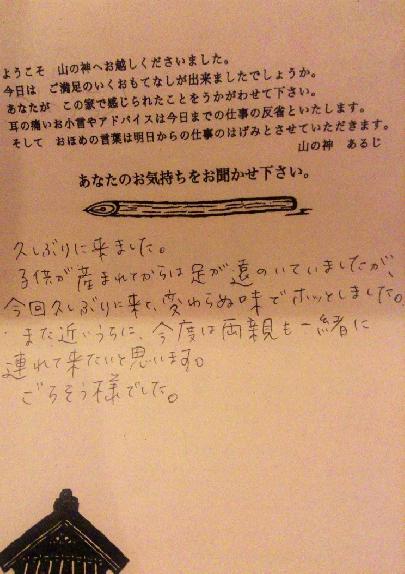 ようこそ 山の神へお越しくださいました。
今日は ご満足のいくおもてなしが出来ましたでしょうか。
あなたが この家で感じられたことをうかがわせて下さい。
耳の痛いお小言やアドバイスは今日までの仕事の反省といたします。
そして おほめの言葉は明日からの仕事のはげみとさせていただきます。
山の神 あるじ
あなたのお気持ちをお聞かせ下さい。
久しぶりに来ました。
子供が産まれてからは足が遠のいていましたが、
今回久しぶりに来て、変わらぬ味でホッとしました。
また近いうちに、今度は両親も一緒に
連れて来たいと思います。
ごちそう様でした。